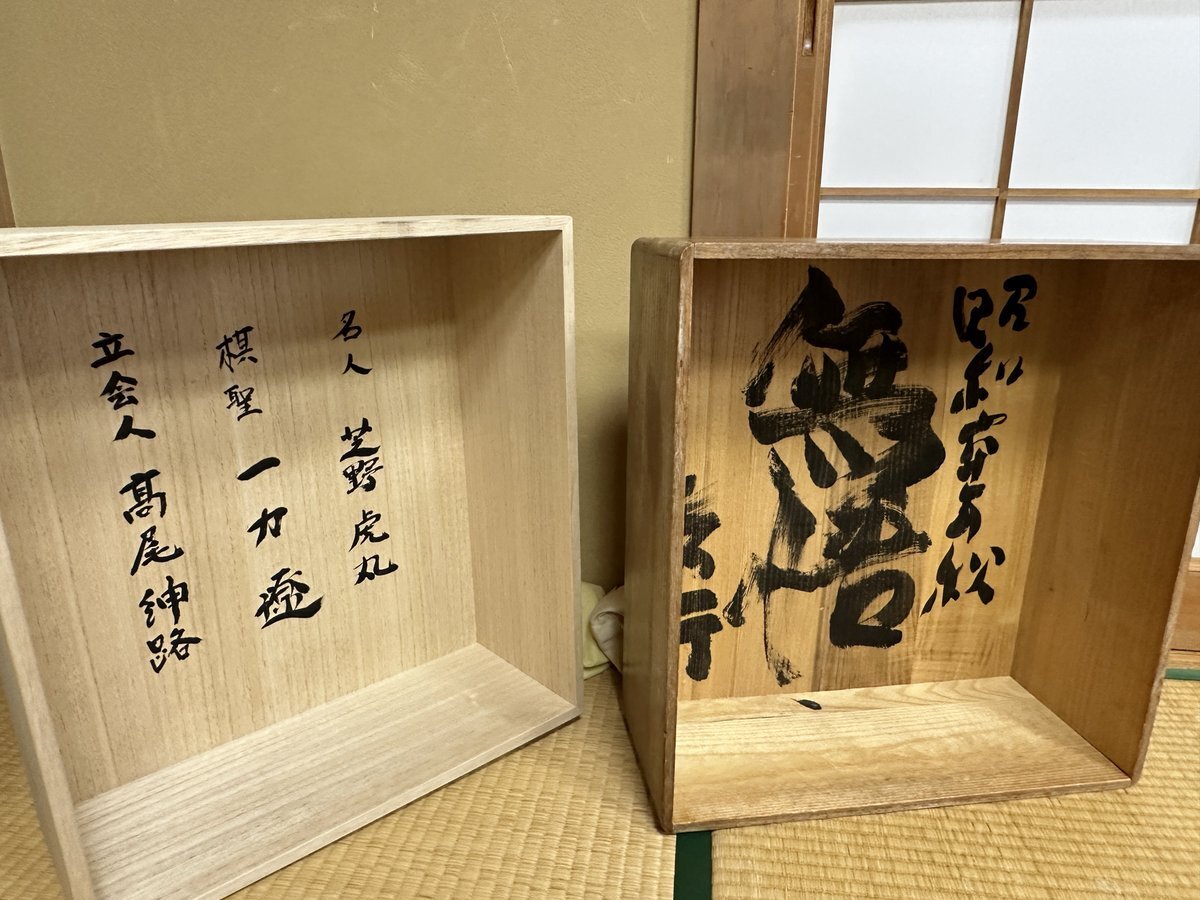 名人 芝野虎丸
棋聖 一力遼
立会人 髙尾紳路
昭和寅年松
無悟